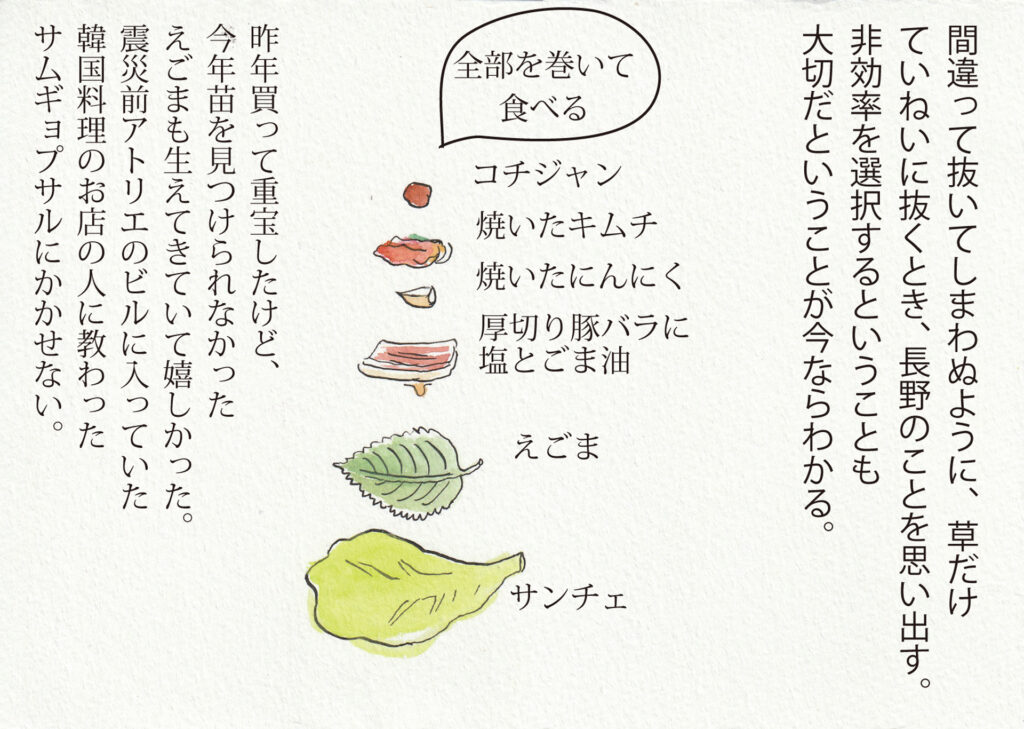 間違って抜いてしまわぬように、草だけ
ていねいに抜くとき、長野のことを思い出す。
非効率を選択するということも
大切だということが今ならわかる。
全部を巻いて
食べる
コチジャン
焼いたキムチ
焼いたにんにく
厚切り豚バラに
塩とごま油
えごま
サンチェ
昨年買って重宝したけど、
今年苗を見つけられなかった
えごまも生えてきていて嬉しかった。
震災前アトリエのビルに入っていた
韓国料理のお店の人に教わった
サムギョプサルにかかせない。